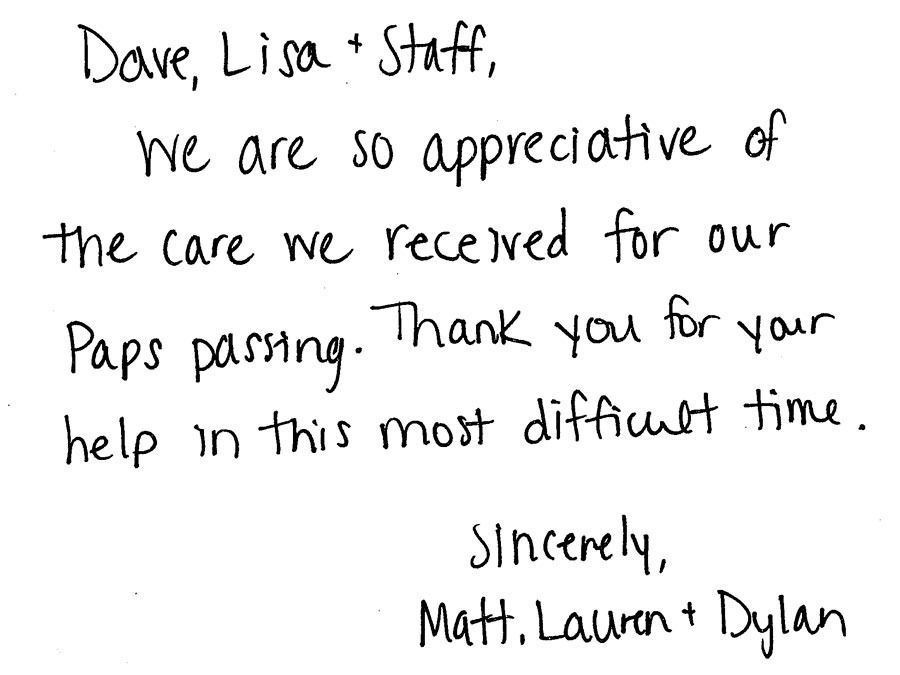 Dave, Lisa + Staff,
We are so appreciative of
the care we received for our
Paps passing. Thank you for your
help in this most difficult time.
Sincerely,
Matt, Lauren + Dylan